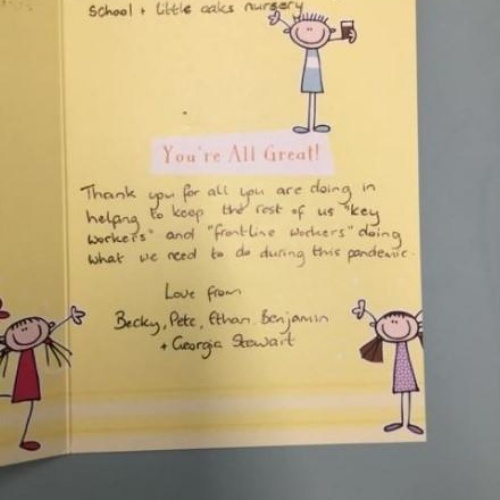 School + little oaks nursery
You're All Great!
Thank you for all you are doing in
helping to keep the rest of us "key
workers" and "frontline workers" doing
what we need to do during this pandemic.
Love from
Becky, Pete, Ethan Benjamin
+ Georgia Stewart